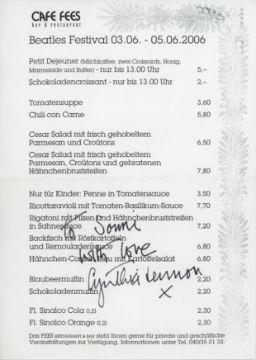 CAFE FEES
bar & restaurant
Beatles Festival 03.06. - 05.06.2006
Petit Dejeuner (Milchkaffee, zwei Croissants, Honig,
Marmelade und Butter) - nur bis 13.00 Uhr 5,–
Schokoladencroissant - nur bis 13.00 Uhr 2,–
Tomatensuppe 3,60
Chili con Carne 5,80
Cesar Salad mit frisch gehobeltem
Parmesan und Croûtons 6,50
Cesar Salad mit frisch gehobeltem
Parmesan, Croûtons und gebratenen
Hähnchenbruststreifen 7,80
Nur für Kinder: Penne in Tomatensauce 3,50
Ricottaravioli mit Tomaten-Basilikum-Sauce 7,70
Rigatoni mit Pilzen und Hähnchenbruststreifen
in Sahnesauce 7,20
Backfisch mit Röstkartoffeln
und Remouladensauce 6,80
Hähnchen- mit Kartoffelsalat 6,80
Blaubeermuffin 2,20
Schokoladenmuffin 2,20
Fl. Sinalco Cola 0,2l 2,30
Fl. Sinalco Orange 0,2l 2,30
To
with love
Cynthia Lennon
Das FEES RESTAURANT & BAR steht Ihnen gerne für private und geschäftliche
Veranstaltungen zur Verfügung. Informationen unter Tel. 040/